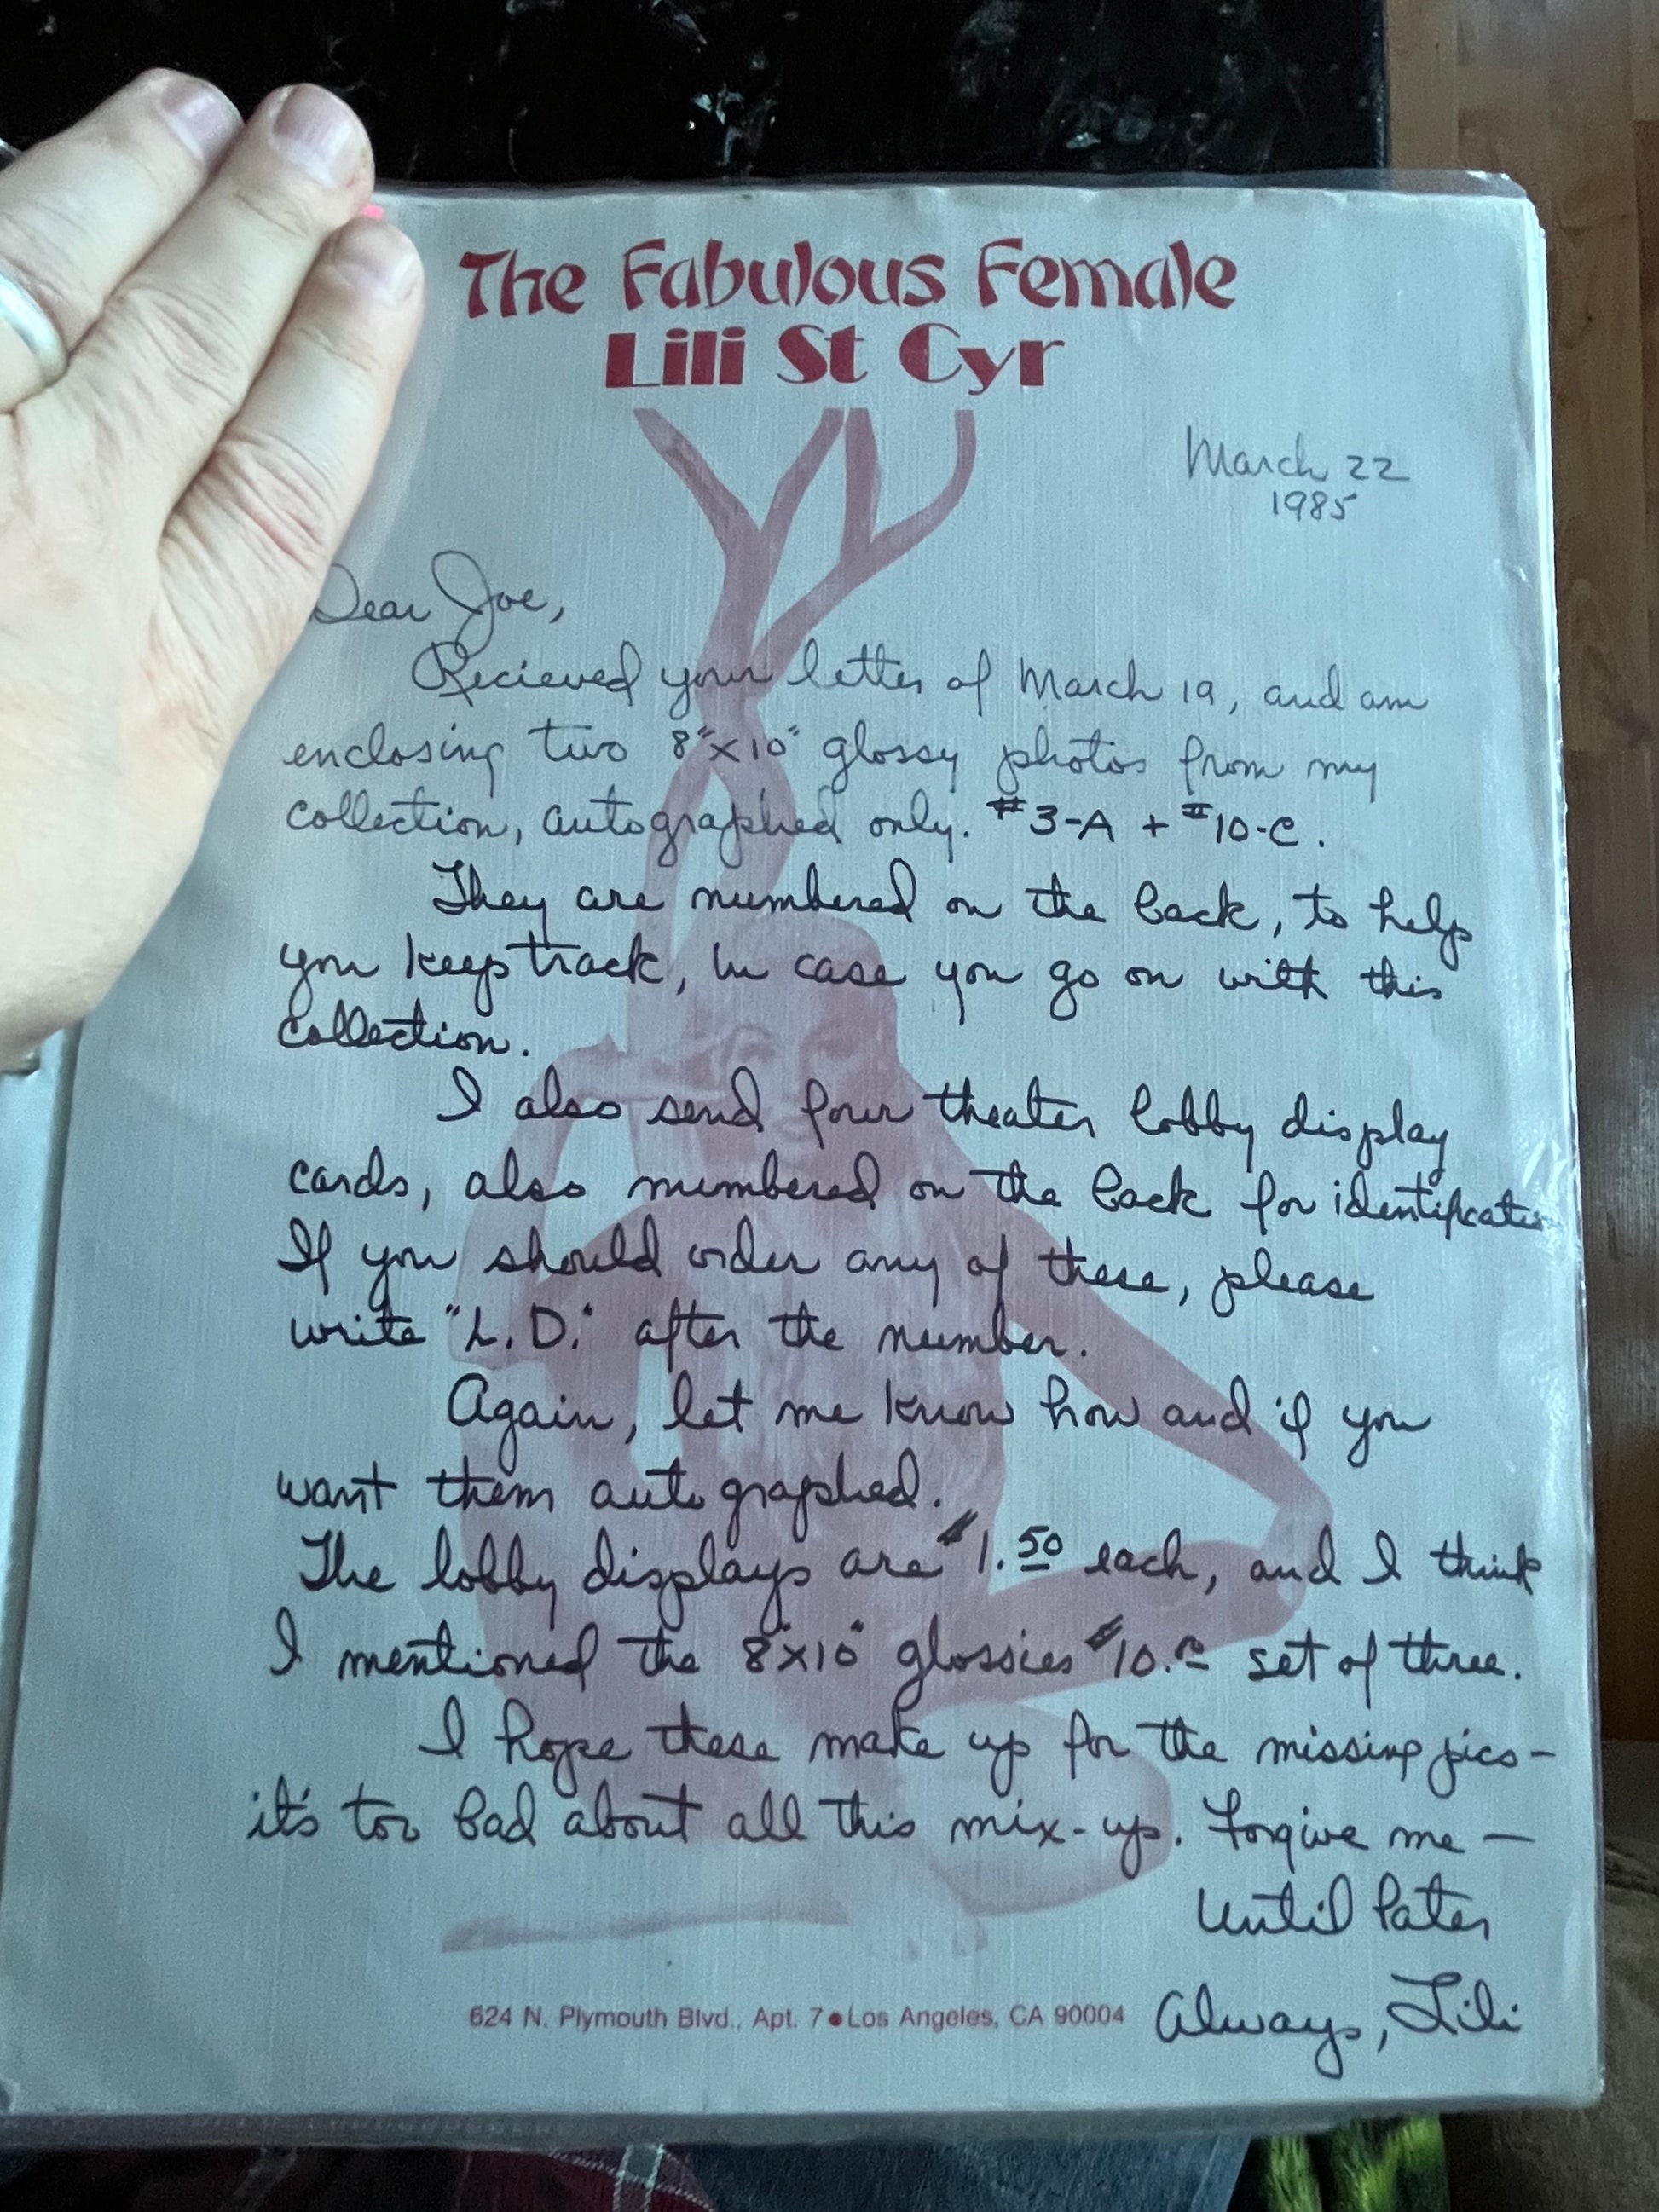 The Fabulous Female
Lili St Cyr
March 22
1985
Dear Joe,
Recieved your letter of March 19, and am
enclosing two 8"x10" glossy photos from my
collection, autographed only. #3-A + #10-C.
They are numbered on the back, to help
you keep track, in case you go on with this
collection.
I also send four theater lobby display
cards, also numbered on the back for identification
If you should order any of these, please
write "L.D." after the number.
Again, let me know how and if you
want them autographed.
The lobby displays are $1.50 each, and I think
I mentioned the 8"x10" glossies $10.00 set of three.
I hope these make up for the missing pics-
it's too bad about all this mix-up. Forgive me —
Until later
Always, Lili
624 N. Plymouth Blvd., Apt. 7 • Los Angeles, CA 90004